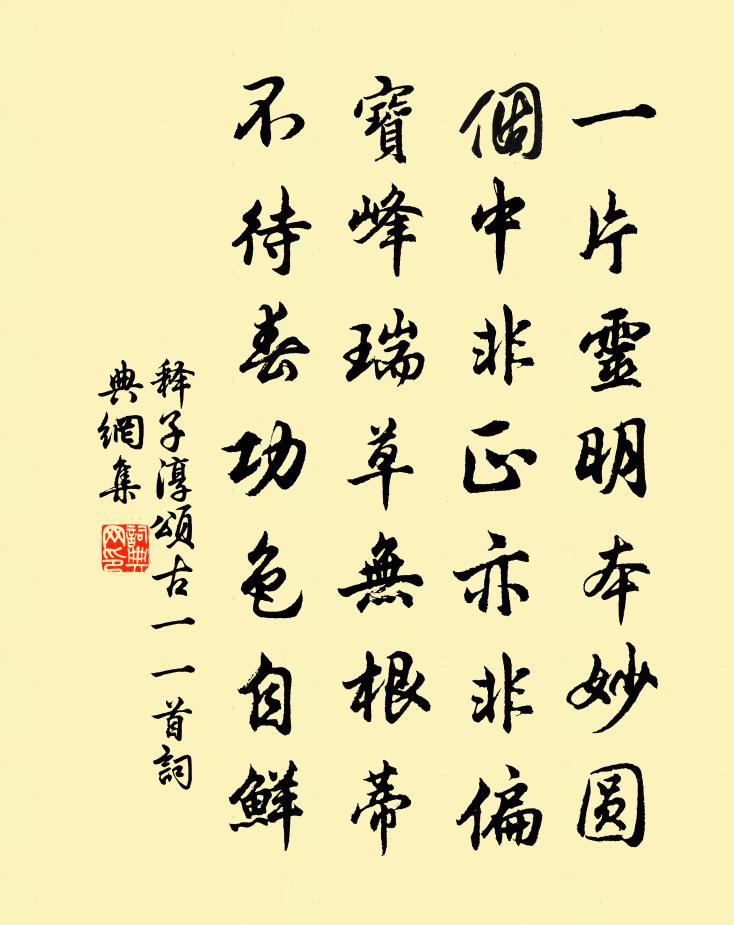 一片靈明本妙圓
個中非正亦非偏
寶峰瑞草無根蒂
不待春功色自鮮
释子淳頌古一一首詞
典網集
詞典
网印